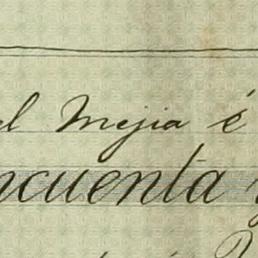 el Mejia é
ncuenta y